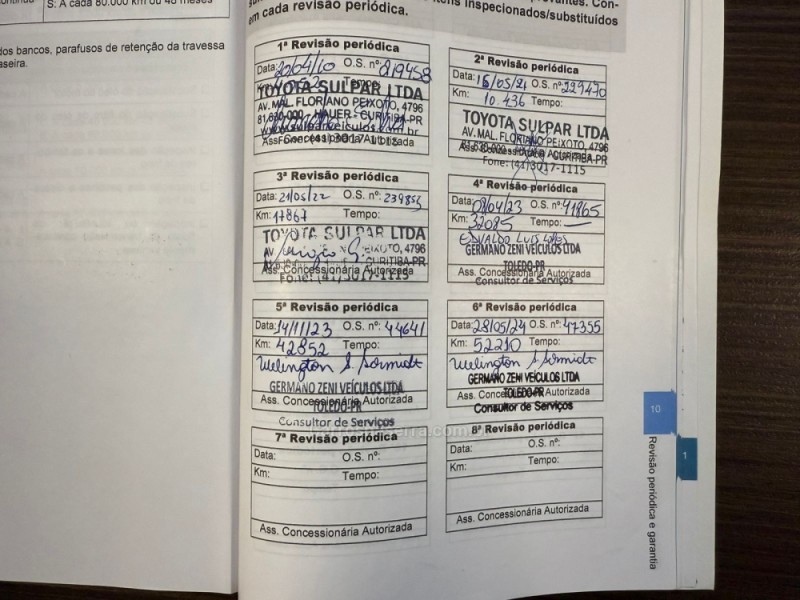 S: A cada 80.000 km ou 48 meses
dos bancos, parafusos de retenção da travessa
aseira.
itens inspecionados/substituídos
em cada revisão periódica.
1ª Revisão periódica
Data: 20/04/10 O.S. nº: 219458
TOYOTA SULPAR LTDA
AV. MAL. FLORIANO PEIXOTO, 4796
81.630-000 - HAUER - CURITIBA-PR
www.sulparveiculos.com.br
Ass. Concessionária Autorizada
Fone: (41) 3017-1115
2ª Revisão periódica
Data: 15/05/21 O.S. nº 229470
Km: 10.436 Tempo:
TOYOTA SULPAR LTDA
AV. MAL. FLORIANO PEIXOTO, 4796
81.630-000 CURITIBA-PR
Ass. Concessionária Autorizada
Fone: (41) 3017-1115
3ª Revisão periódica
Data: 21/05/22 O.S. nº: 239853
Km: 17867 Tempo:
TOYOTA SULPAR LTDA
AV PEIXOTO, 4796
CURITIBA-PR
Ass. Concessionária Autorizada
Fone: (41) 3017-1115
4ª Revisão periódica
Data: 08/04/23 O.S. nº 41865
Km: 32085 Tempo: —
GERMANO ZENI VEÍCULOS LTDA
TOLEDO-PR
Ass. Concessionária Autorizada
Consultor de Serviços
5ª Revisão periódica
Data: 14/11/23 O.S. nº: 44641
Km: 42852 Tempo:
Welington S. Schmidt
GERMANO ZENI VEÍCULOS LTDA
Ass. Concessionária Autorizada
TOLEDO-PR
Consultor de Serviços
6ª Revisão periódica
Data: 28/05/24 O.S. nº: 47355
Km: 52210 Tempo:
Welington S. Schmidt
GERMANO ZENI VEÍCULOS LTDA
Ass. Concessionária Autorizada
TOLEDO-PR
Consultor de Serviços
7ª Revisão periódica
Data: O.S. nº:
Km: Tempo:
Ass. Concessionária Autorizada
8ª Revisão periódica
Data: O.S. nº:
Km: Tempo:
Ass. Concessionária Autorizada
10
1
Revisão periódica e garantia